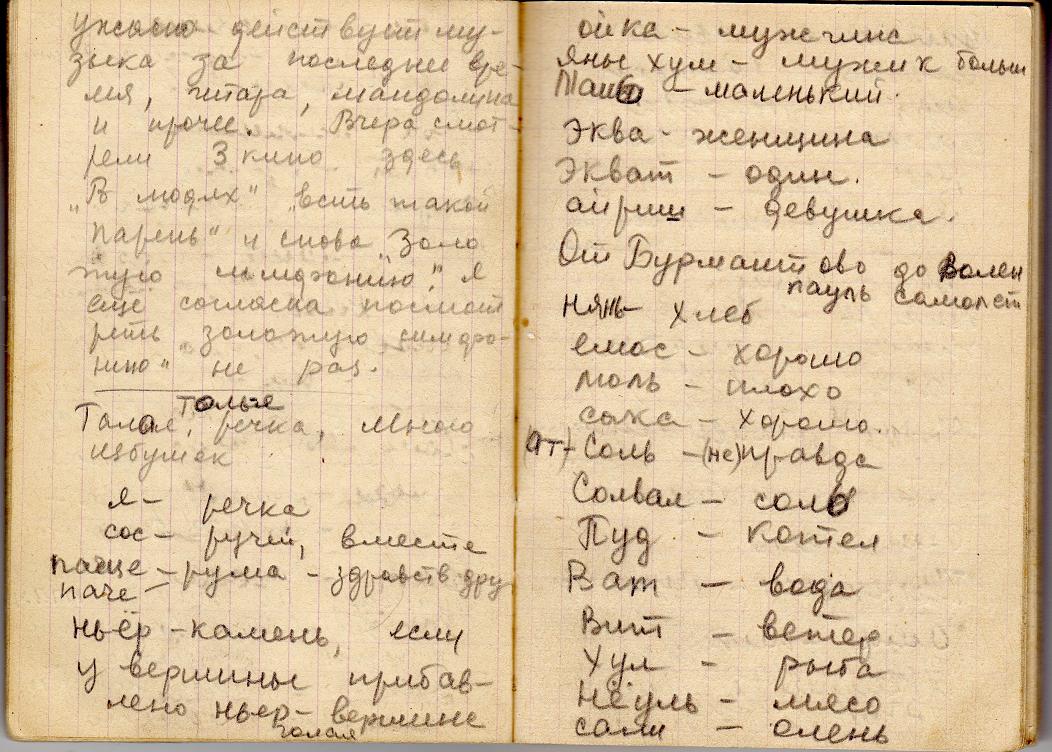 ужасно действует му-
зыка за последнее вре-
мя, гитара, мандолина
и прочее. Вчера смот-
рели 3 кино здесь
„В людях" „Есть такой
парень" и снова „Золо
тую симфонию", я
еще согласна посмот
реть „золотую симфо-
нию" не раз.
Толье
Талая, речка, много
избушек
я - речка
сос - ручей, вместе
паще - рума - здравств. друг
паче
ньёр - камень, если
у вершины прибав-
лено ньер - вершине
голая
ойка - мужчина
яны хум - мужик больш
Мань - маленький.
Эква - женщина
Экват - один.
айриш - девушка.
От Бурмантово до Волен
пауль самолет
нянь - хлеб
емас - хорошо
люль - плохо
сака - хорошо.
(Ат) - Соль - (не)правда
Солвал - соль
Пуд - котел
Ват - вода
Вит - ветер
Хул - рыба
Неуль - мясо
сали - олень